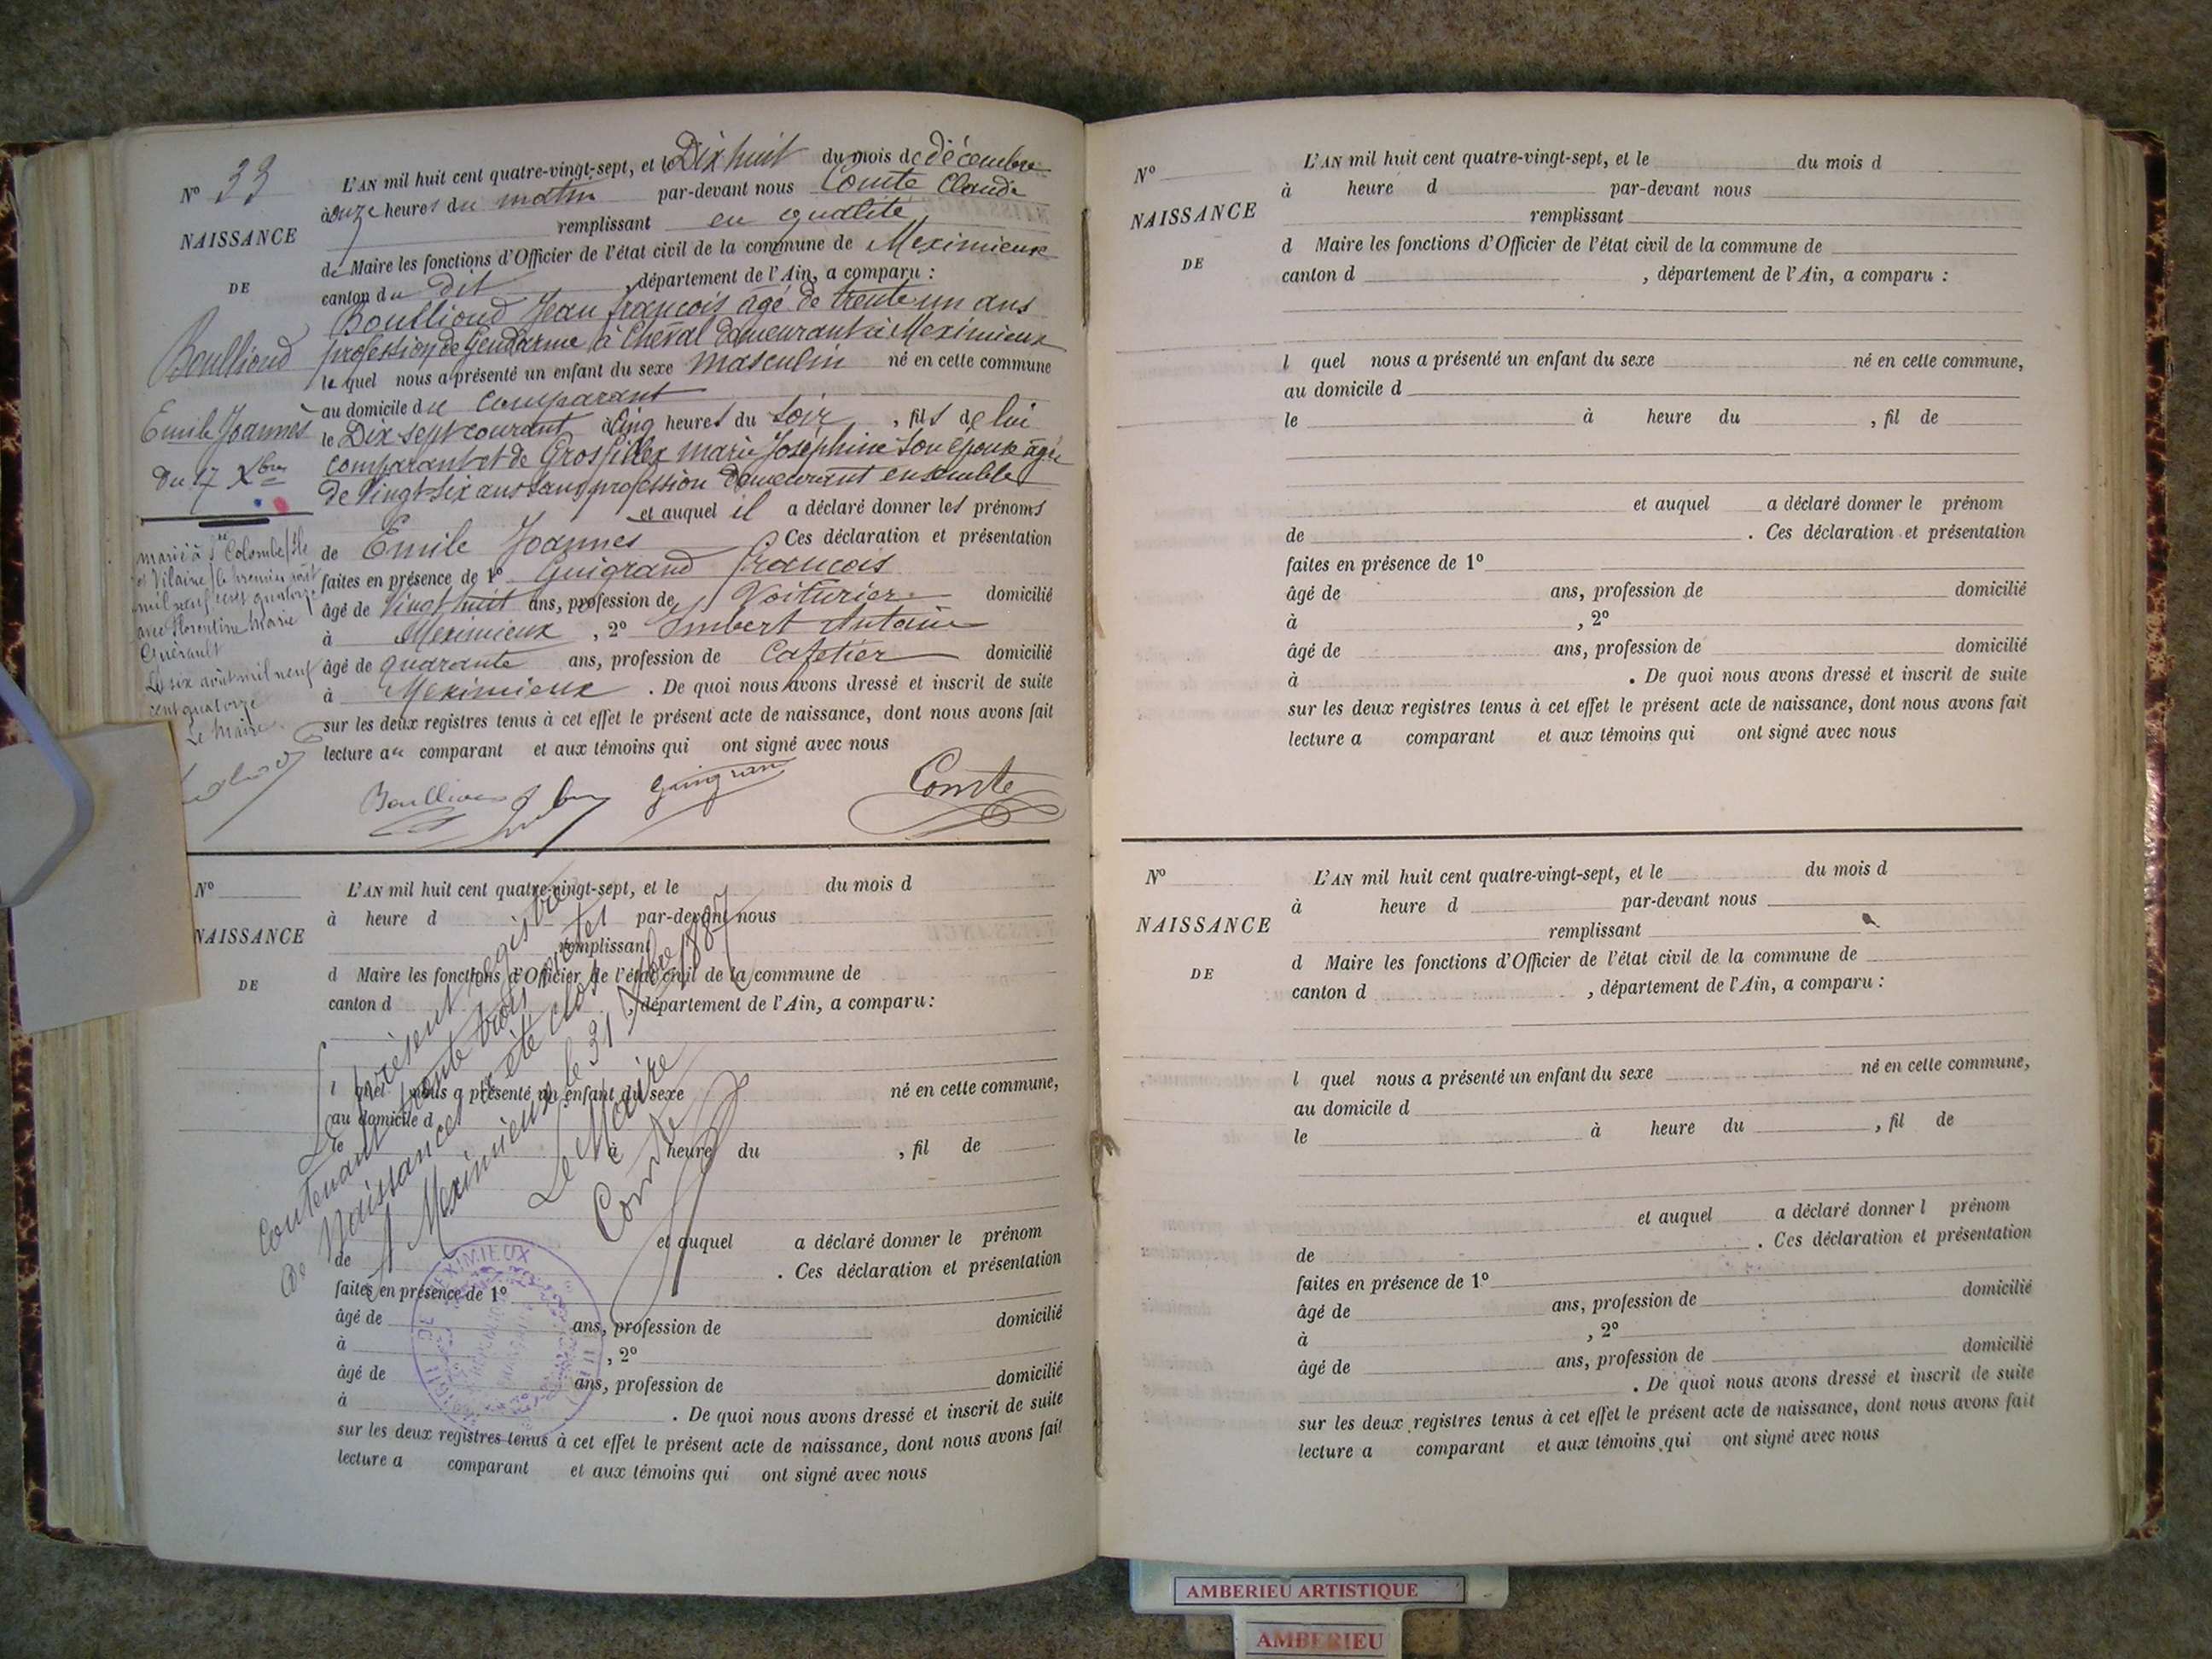 N° 33
NAISSANCE
DE
Boullioud
Emile Joannès
du 17 Xbre
marié à Ste Colombe (Ille
et Vilaine) le premier août
mil neuf cent quatorze
avec Florentine Marie
Guérault
Le six août mil neuf
cent quatorze
Le Maire
L'AN mil huit cent quatre-vingt-sept, et le Dix huit du mois de décembre
à onze heures du matin par-devant nous Comte Claude
remplissant en qualité
de Maire les fonctions d'Officier de l'état civil de la commune de Meximieux
canton du dit, département de l'Ain, a comparu :
Boullioud Jean François âgé de trente un ans
profession de Gendarme à Cheval demeurant à Meximieux
lequel nous a présenté un enfant du sexe masculin né en cette commune
au domicile du comparant
le Dix sept courant à Cinq heures du soir, fils de lui
comparant et de Grospillex Marie Joséphine son épouse âgée
de Vingt-six ans sans profession demeurant ensemble
et auquel il a déclaré donner les prénoms
de Emile Joannes Ces déclaration et présentation
faites en présence de 1° Guigrand François
âgé de Vingt huit ans, profession de Voiturier domicilié
à Meximieux, 2° Imbert Antoine
âgé de quarante ans, profession de Cafetier domicilié
à Meximieux. De quoi nous avons dressé et inscrit de suite
sur les deux registres tenus à cet effet le présent acte de naissance, dont nous avons fait
lecture au comparant et aux témoins qui ont signé avec nous
Boullioud Guigrand Comte
N°
NAISSANCE
DE
L'AN mil huit cent quatre-vingt-sept, et le du mois d
à heure d par-devant nous
remplissant
d Maire les fonctions d'Officier de l'état civil de la commune de
canton d , département de l'Ain, a comparu :
l quel nous a présenté un enfant du sexe né en cette commune,
au domicile d
le à heure du , fil de
et auquel a déclaré donner le prénom
de . Ces déclaration et présentation
faites en présence de 1°
âgé de ans, profession de domicilié
à , 2°
âgé de ans, profession de domicilié
à . De quoi nous avons dressé et inscrit de suite
sur les deux registres tenus à cet effet le présent acte de naissance, dont nous avons fait
lecture a comparant et aux témoins qui ont signé avec nous
Le présent registre
contenant trente trois actes
de Naissances a été clos
à Meximieux le 31 Xbre 1887
Le Maire
Comte
MEXIMIEUX
N°
NAISSANCE
DE
L'AN mil huit cent quatre-vingt-sept, et le du mois d
à heure d par-devant nous
remplissant
d Maire les fonctions d'Officier de l'état civil de la commune de
canton d , département de l'Ain, a comparu :
l quel nous a présenté un enfant du sexe né en cette commune,
au domicile d
le à heure du , fil de
et auquel a déclaré donner le prénom
de . Ces déclaration et présentation
faites en présence de 1°
âgé de ans, profession de domicilié
à , 2°
âgé de ans, profession de domicilié
à . De quoi nous avons dressé et inscrit de suite
sur les deux registres tenus à cet effet le présent acte de naissance, dont nous avons fait
lecture a comparant et aux témoins qui ont signé avec nous
N°
NAISSANCE
DE
L'AN mil huit cent quatre-vingt-sept, et le du mois d
à heure d par-devant nous
remplissant
d Maire les fonctions d'Officier de l'état civil de la commune de
canton d , département de l'Ain, a comparu :
l quel nous a présenté un enfant du sexe né en cette commune,
au domicile d
le à heure du , fil de
et auquel a déclaré donner l prénom
de . Ces déclaration et présentation
faites en présence de 1°
âgé de ans, profession de domicilié
à , 2°
âgé de ans, profession de domicilié
. De quoi nous avons dressé et inscrit de suite
sur les deux registres tenus à cet effet le présent acte de naissance, dont nous avons fait
lecture a comparant et aux témoins qui ont signé avec nous
AMBERIEU ARTISTIQUE
AMBERIEU